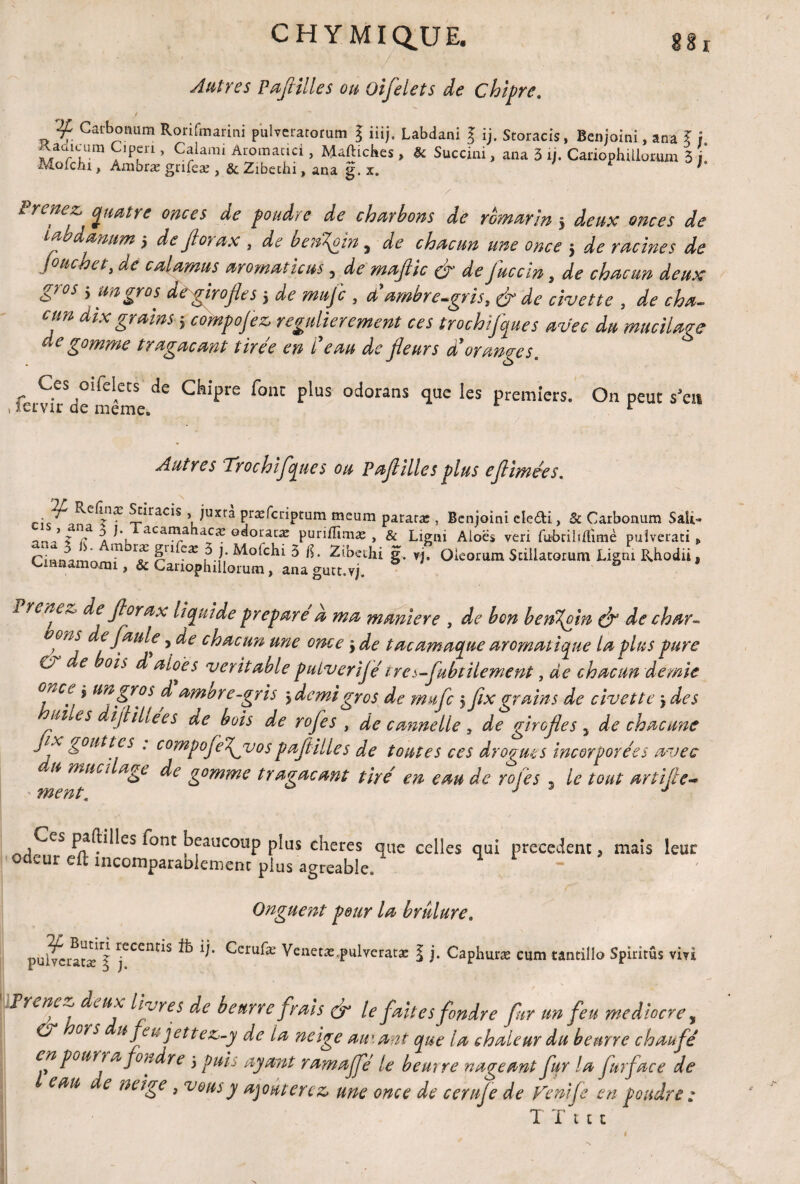 CHYMIQUE. 881
Autres Pastilles ou Oiselets de Chipre.
♃ Carbonum Rorismarini pulveratorum ℥ iiij. Labdani ℥ ij. Storacis, Benjoini, ana ℥ j.
Radicum Ciperi, Calami Aromatici, Mastiches, & Succini, ana ʒ ij. Cariophillorum ʒ j.
Moschi, Ambræ griseæ, & Zibethi, ana g̃. x.
Prenez quatre onces de poudre de charbons de romarin; deux onces de
labdanum; de storax, de benzoin, de chacun une once; de racines de
souchet, de calamus aromaticus, de mastic & de succin, de chacun deux
gros; un gros de girofles; de musc, d'ambre-gris, & de civette, de cha-
cun dix grains; composez regulierement ces trochisques avec du mucilage
de gomme tragacant tirée en l'eau de fleurs d'oranges.
Ces oiselets de Chipre sont plus odorans que les premiers. On peut s'en
servir de même.
Autres Trochisques ou Pastilles plus estimées.
♃ Resinæ Stiracis, juxtà præscriptum meum paratæ, Benjoini electi, & Carbonum Sali-
cis, ana ℥ j. Tacamahacæ odoratæ purissimæ, & Ligni Aloës veri subtilissimè pulverati,
ana ℥ ß. Ambræ griseæ ʒ j. Moschi ʒ ß. Zibethi g̃. vj. Oleorum Stillatorum Ligni Rhodii,
Cinnamomi, & Cariophillorum, ana gutt. vj.
Prenez de storax liquide preparé à ma maniere, de bon benzoin & de char-
bons de saule, de chacun une once; de tacamaque aromatique la plus pure
& de bois d'aloës veritable pulverisé tres-subtilement, de chacun demie
once; un gros d'ambre-gris; demi gros de musc; six grains de civette; des
huiles distillées de bois de roses, de cannelle, de girofles, de chacune
six gouttes: composez vos pastilles de toutes ces drogues incorporées avec
du mucilage de gomme tragacant tiré en eau de roses, le tout artiste-
ment.
Ces pastilles sont beaucoup plus cheres que celles qui precedent, mais leur
odeur est incomparablement plus agreable.
Onguent pour la brûlure.
♃ Butiri recentis ℔ ij. Cerusæ Venetæ pulveratæ ℥ j. Caphuræ cum tantillo Spiritûs vivi
pulveratæ ℥ j.
Prenez deux livres de beurre frais & le faites fondre sur un feu mediocre,
& hors du feu jettez-y de la neige autant que la chaleur du beurre chaufé
en pourra fondre; puis ayant ramassé le beurre nageant sur la surface de
l'eau de neige, vous y ajoûterez une once de ceruse de Venise en poudre:
TTttt